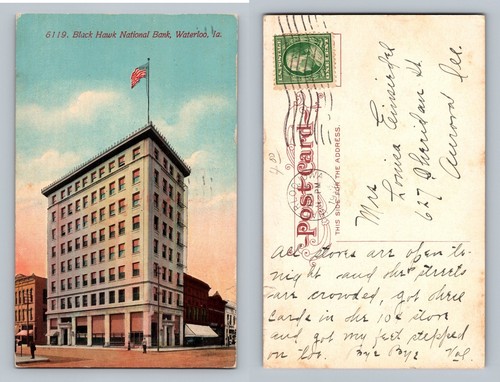 6119. Black Hawk National Bank, Waterloo, Ia.
Post Card
THIS SIDE FOR THE ADDRESS.
Mrs
Louisa
627 Sheridan St
Aurora Ill.
All stores are open to-
night and the streets
are crowded, got three
cards in the 10¢ store
and got my feet stepped
on too. Bye Bye Val.